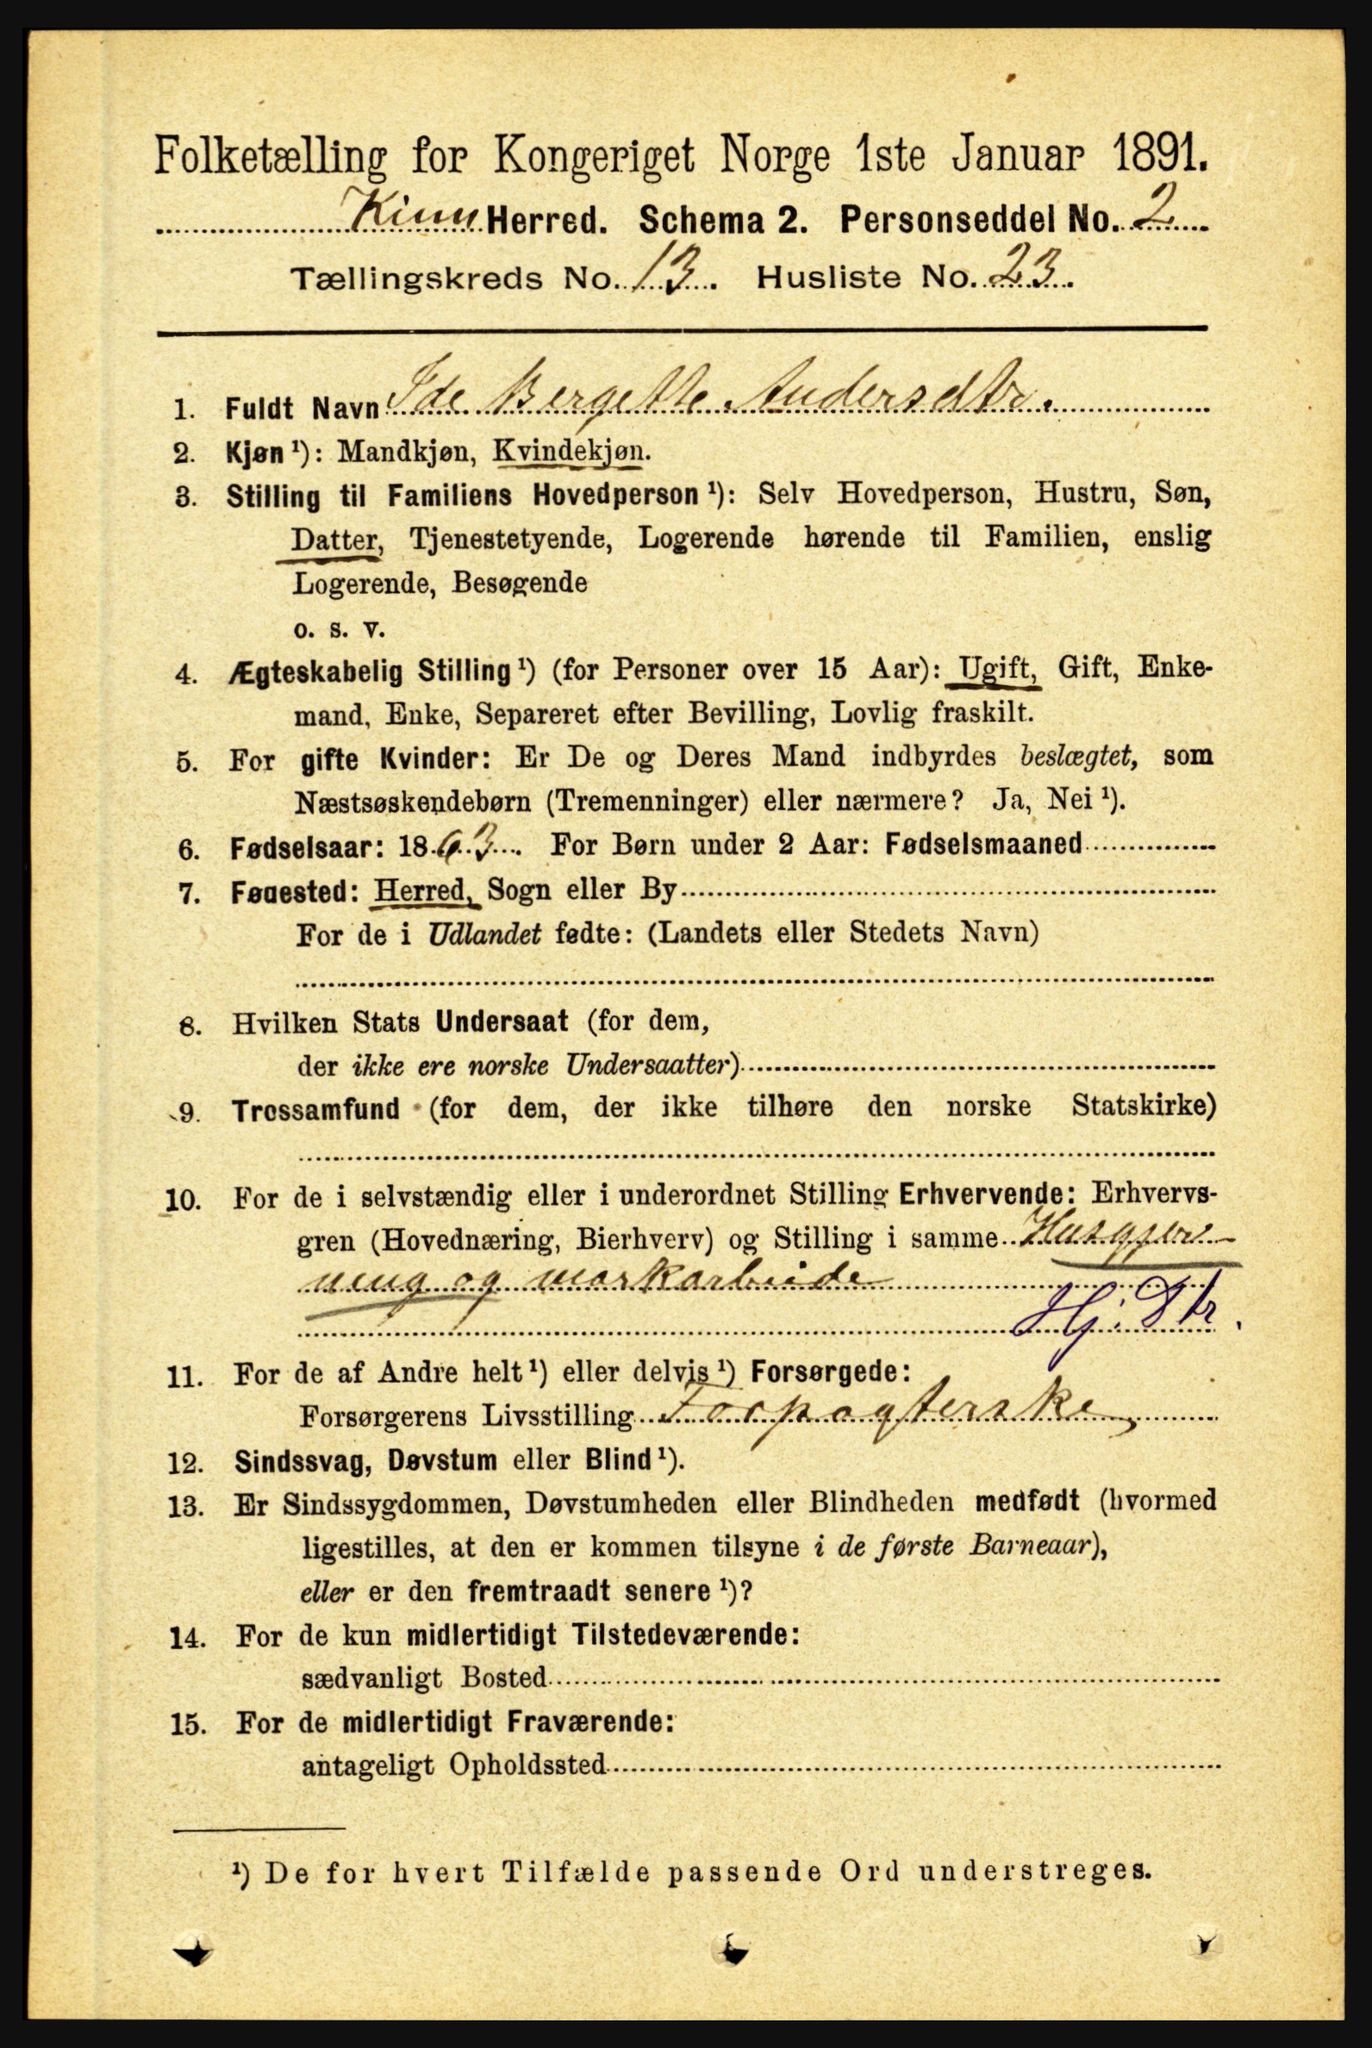 Folketælling for Kongeriget Norge 1ste Januar 1891.
Kinn Herred. Schema 2. Personseddel No. 2
Tællingskreds No. 13. Husliste No. 23.
1. Fuldt Navn Ide Bergette Andersdtr.
2. Kjøn ¹): Mandkjøn, Kvindekjøn.
3. Stilling til Familiens Hovedperson ¹): Selv Hovedperson, Hustru, Søn,
Datter, Tjenestetyende, Logerende hørende til Familien, enslig
Logerende, Besøgende
o. s. v.
4. Ægteskabelig Stilling ¹) (for Personer over 15 Aar): Ugift, Gift, Enke-
mand, Enke, Separeret efter Bevilling, Lovlig fraskilt.
5. For gifte Kvinder: Er De og Deres Mand indbyrdes beslægtet, som
Næstsøskendebørn (Tremenninger) eller nærmere? Ja, Nei ¹).
6. Fødselsaar: 1863. For Børn under 2 Aar: Fødselsmaaned
7. Føuested: Herred, Sogn eller By
For de i Udlandet fødte: (Landets eller Stedets Navn)
8. Hvilken Stats Undersaat (for dem,
der ikke ere norske Undersaatter)
9. Trossamfund (for dem, der ikke tilhøre den norske Statskirke)
10. For de i selvstændig eller i underordnet Stilling Erhvervende: Erhvervs-
gren (Hovednæring, Bierhverv) og Stilling i samme Husgjer-
ning og markarbeide
Hj. Dtr.
11. For de af Andre helt ¹) eller delvis ¹) Forsørgede:
Forsørgerens Livsstilling Forpagterske
12. Sindssvag, Døvstum eller Blind ¹).
13. Er Sindssygdommen, Døvstumheden eller Blindheden medfødt (hvormed
ligestilles, at den er kommen tilsyne i de første Barneaar),
eller er den fremtraadt senere ¹)?
14. For de kun midlertidigt Tilstedeværende:
sædvanligt Bosted
15. For de midlertidigt Fraværende:
antageligt Opholdssted
¹) De for hvert Tilfælde passende Ord understreges.